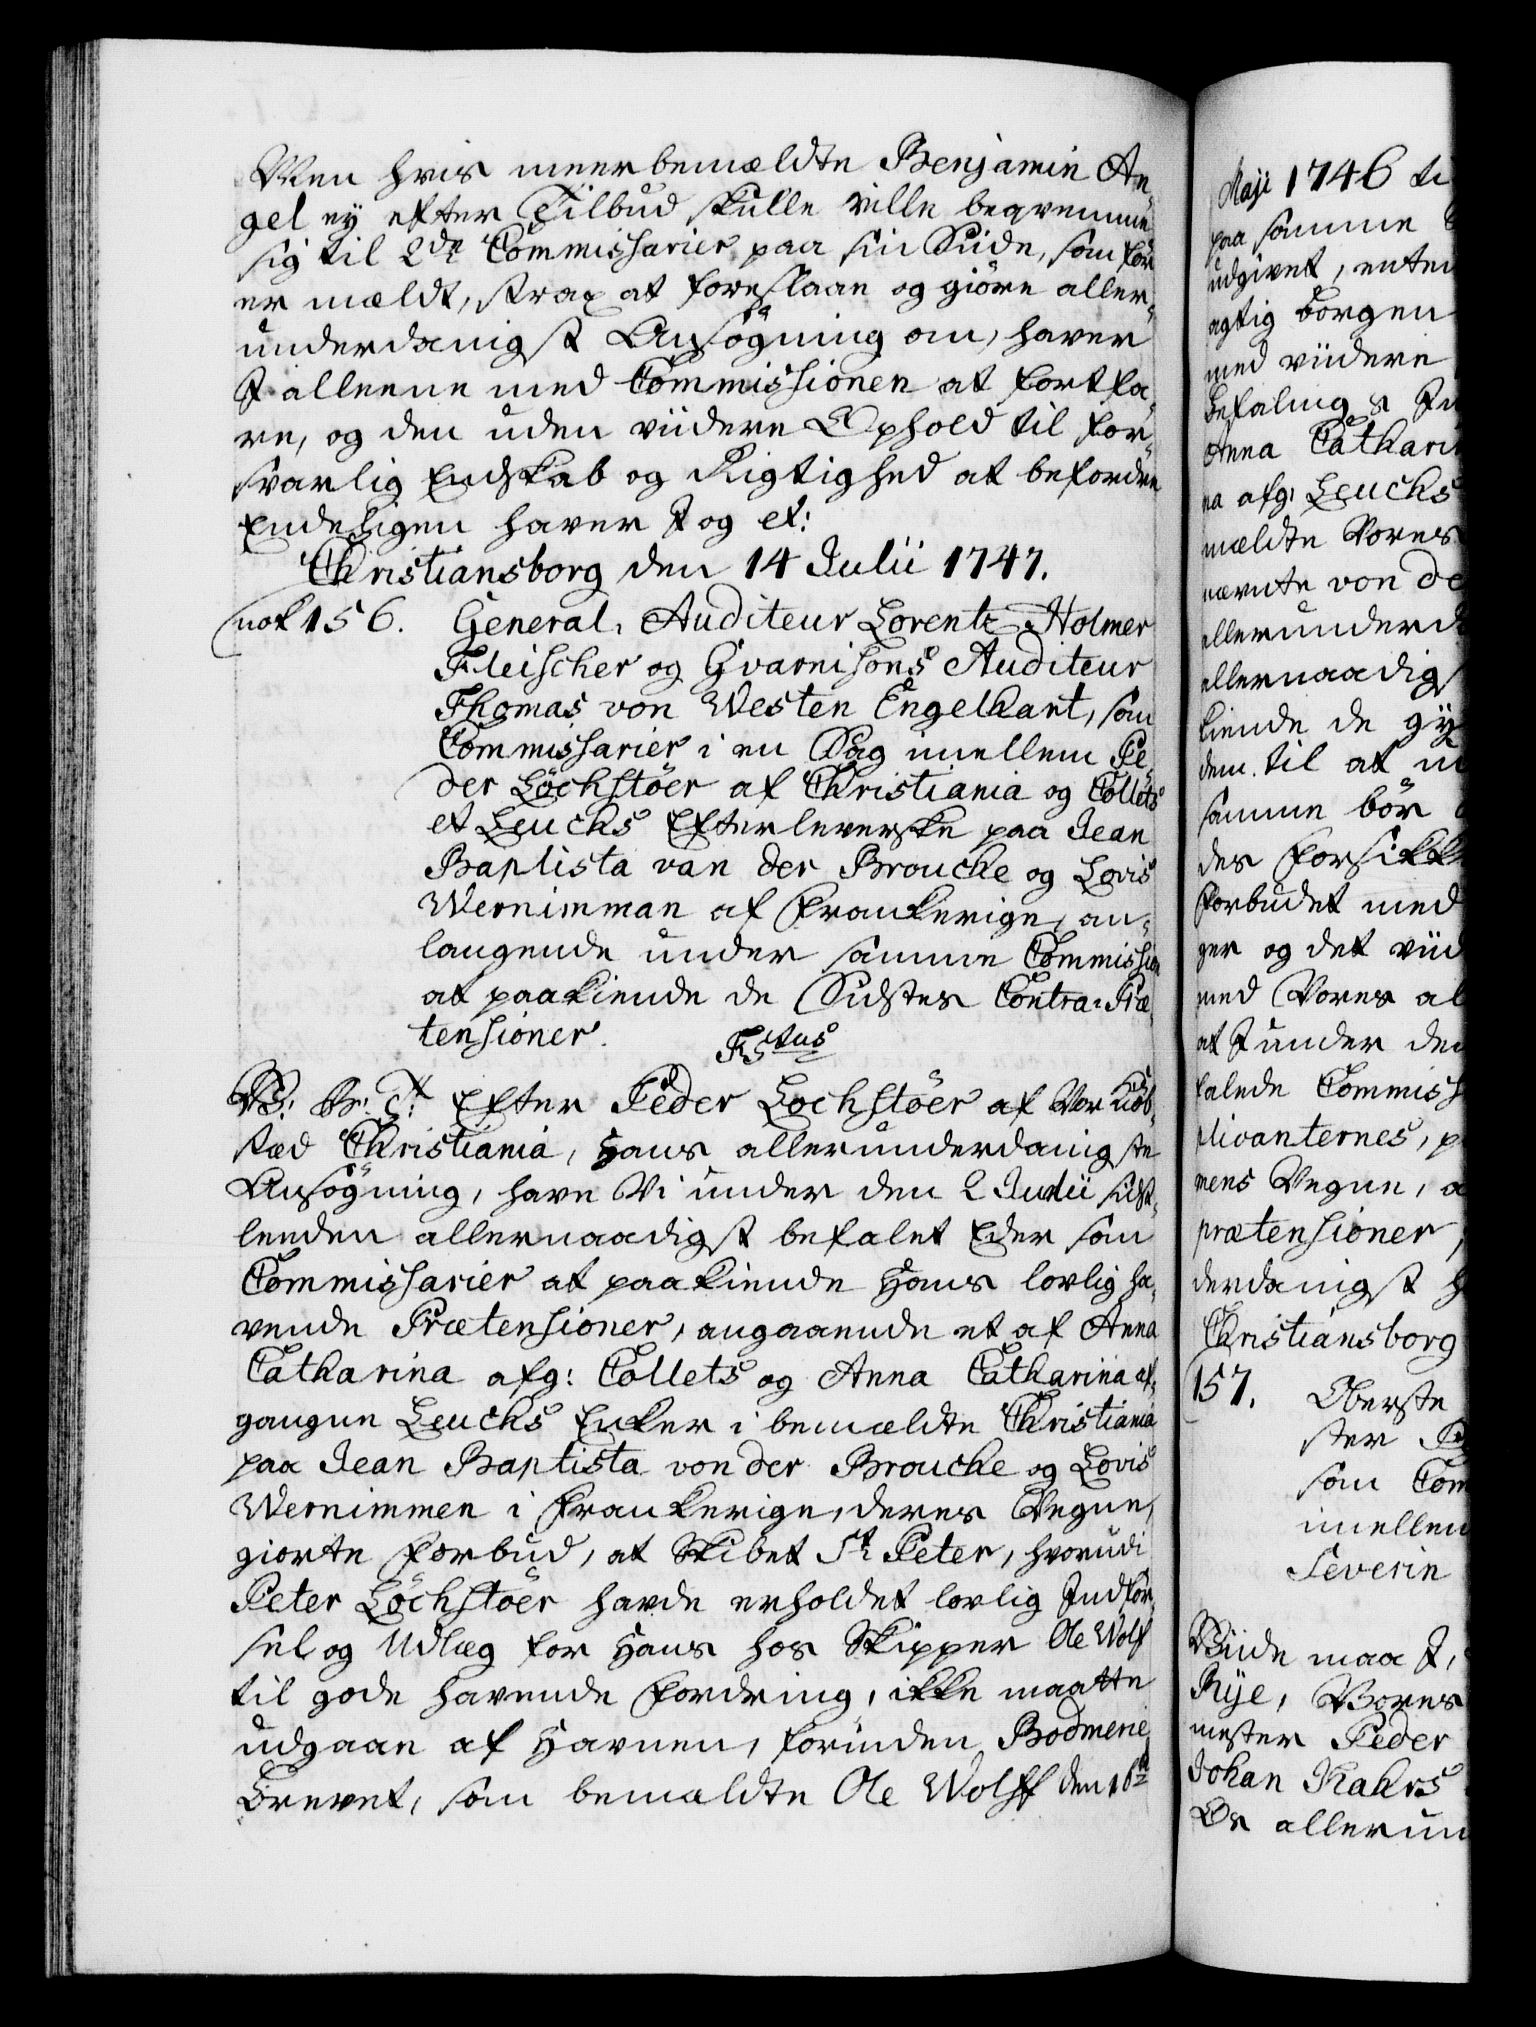 Men hvis meerbemældte Benjamin An¬
gel ey efter Tilbud skulle ville beqvemme
sig til 2de Commissarier paa sin Siide, som før
er mældt, strax at foreslaae og giöre aller¬
underdanigst Ansögning om, haver
I alleene med Commissionen at fortfa¬
re, og den uden viidere Ophold til for¬
svarlig Endskab og Rigtighed at befordre
Endeligen haver I og et:
Christiansborg den 14 Julii 1747.
nok 156. General-Auditeur Lorentz Holmer
Fleischer og Gvarnisons Auditeur
Thomas von Westen Engelhart, som
Commissarier i en Sag imellem Pe¬
der Löchstöer af Christiania og Collets
et Leuchs Efterleverske paa Jean
Baptista van der Brouche og Lovis
Wernimman af Frankerige, an¬
langende under samme Commission
at paakiende de Sidstes Contra-Præ¬
tensioner.
Fstus
V: Gr: Et Efter Peder Lochstöer af Vor Kiöb¬
stæd Christiania, Hans allerunderdanigste
Ansögning, have Vi under den 2 Junii sidst¬
leeden allernaadigst befalet Eder som
Commissarier at paakiende Hans lovlig ha¬
vende Prætensioner, angaaende et af Anna
Catharina afg: Collets og Anna Catharina af¬
gangne Leuchs Enker i bemældte Christiania
paa Jean Baptista von der Brouche og Lovis
Wernimmen i Frankerige, deres Vegne,
giorte Forbud, at Skibet St Peter, hvorudi
Peter Löchstöer havde erholdet lovlig Indför¬
sel og Udlæg for Hans hos Skipper Ole Wolf
til gode havende Fordring, ikke maatte
udgaae af Havnen, forinden Bodmerie
Brevet, som bemældte Ole Wolff den 16de
Maji 1746 ti
paa samme
udgivet, enten
agtig borgen
med viidere
Befalings
Anna Cathari
na afg: Leuchs
mældte Vores
nævnte von de
allerunderd
allernaadigs
kiende de gy
dem til at
samme bör
des Forsikk
Forbudet med
ger og det viid
med Vores al
at I under den
falede Commiss
plicanternes, p
mens Vegne, a
prætensioner,
derdanigst h
Christiansborg
157. Oberste
ster
som Com
imellem
Severin
Viide maa I,
Rye, Vores
mester Peder
Johan Rahrs
Os allerun